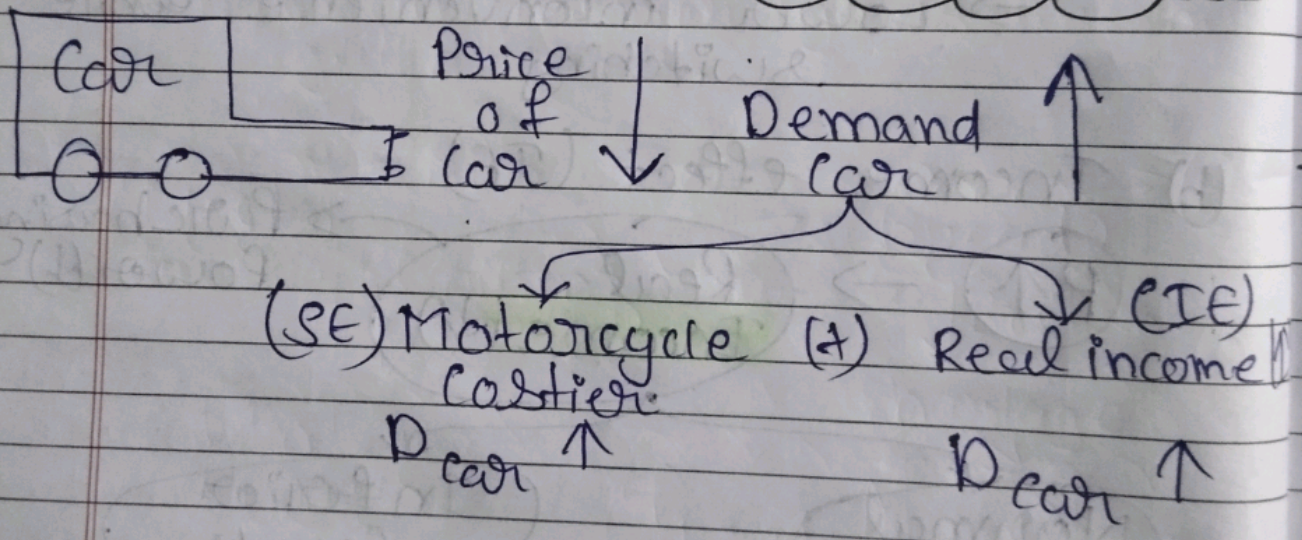 Car
Price of Car ↓
Demand Car ↑
(SE) Motorcycle Costier
(+)
Real income ↑ (IE)
D car ↑
D car ↑